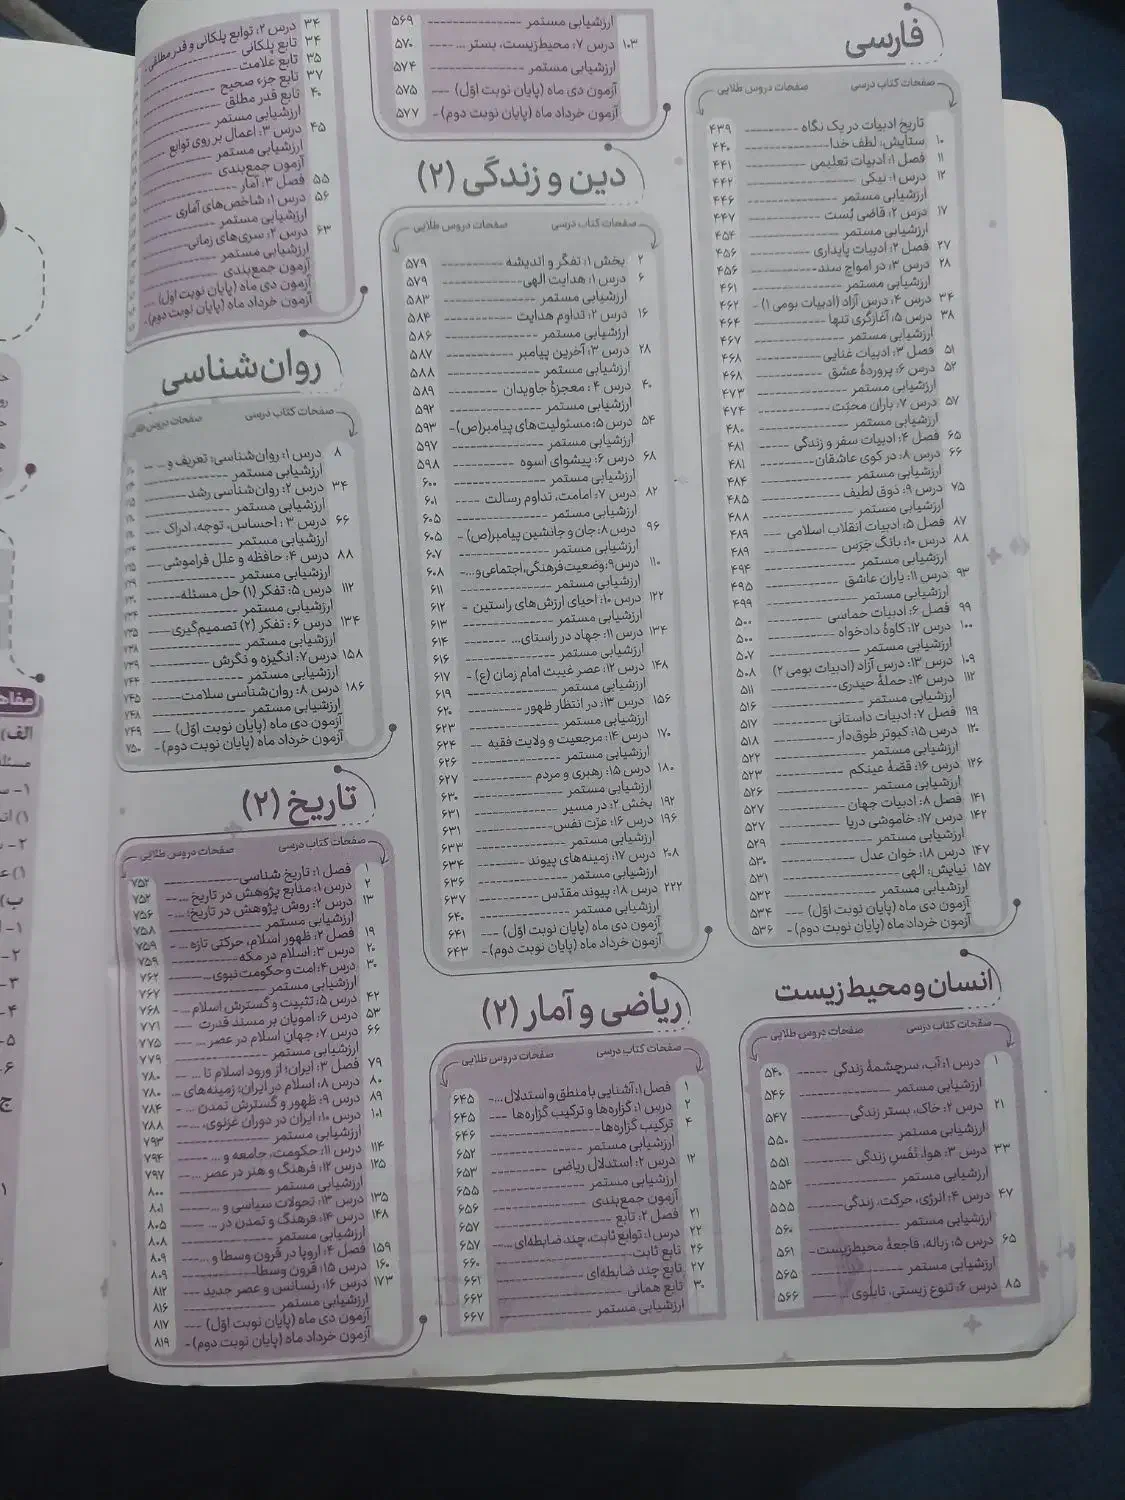 فارسی
صفحات کتاب درسی صفحات دروس طلایی
تاریخ ادبیات در یک نگاه ۴۳۹
۱۰ ستایش، لطف خدا ۴۴۰
۱۱ فصل ۱: ادبیات تعلیمی ۴۴۱
۱۲ درس ۱: نیکی ۴۴۲
ارزشیابی مستمر ۴۴۶
۱۷ درس ۲: قاضی بُست ۴۴۷
ارزشیابی مستمر ۴۵۴
۲۷ فصل ۲: ادبیات پایداری ۴۵۶
۲۸ درس ۳: در امواج سند ۴۵۶
ارزشیابی مستمر ۴۶۱
۳۴ درس ۴: درس آزاد (ادبیات بومی ۱) - ۴۶۲
۳۸ درس ۵: آغازگری تنها ۴۶۴
ارزشیابی مستمر ۴۶۷
۵۱ فصل ۳: ادبیات غنایی ۴۶۸
۵۲ درس ۶: پروردهٔ عشق ۴۶۸
ارزشیابی مستمر ۴۷۳
۵۷ درس ۷: باران محبّت ۴۷۴
ارزشیابی مستمر ۴۸۰
۶۵ فصل ۴: ادبیات سفر و زندگی ۴۸۱
۶۶ درس ۸: در کوی عاشقان ۴۸۱
ارزشیابی مستمر ۴۸۴
۷۵ درس ۹: ذوق لطیف ۴۸۵
ارزشیابی مستمر ۴۸۸
۸۷ فصل ۵: ادبیات انقلاب اسلامی ۴۸۹
۸۸ درس ۱۰: بانگ جَرَس ۴۸۹
ارزشیابی مستمر ۴۹۴
۹۳ درس ۱۱: یاران عاشق ۴۹۵
ارزشیابی مستمر ۴۹۹
۹۹ فصل ۶: ادبیات حماسی ۵۰۰
۱۰۰ درس ۱۲: کاوهٔ دادخواه ۵۰۰
ارزشیابی مستمر ۵۰۷
۱۰۹ درس ۱۳: درس آزاد (ادبیات بومی ۲) ۵۰۸
۱۱۲ درس ۱۴: حملهٔ حیدری ۵۱۱
ارزشیابی مستمر ۵۱۶
۱۱۹ فصل ۷: ادبیات داستانی ۵۱۷
۱۲۰ درس ۱۵: کبوتر طوق‌دار ۵۱۸
ارزشیابی مستمر ۵۲۲
۱۲۶ درس ۱۶: قصّهٔ عینکم ۵۲۳
ارزشیابی مستمر ۵۲۶
۱۴۱ فصل ۸: ادبیات جهان ۵۲۷
۱۴۲ درس ۱۷: خاموشی دریا ۵۲۷
ارزشیابی مستمر ۵۲۹
۱۴۷ درس ۱۸: خوان عدل ۵۳۰
۱۵۷ نیایش: الهی ۵۳۱
ارزشیابی مستمر ۵۳۲
آزمون دی ماه (پایان نوبت اوّل) ۵۳۴
آزمون خرداد ماه (پایان نوبت دوم) - ۵۳۶
انسان و محیط زیست
صفحات کتاب درسی صفحات دروس طلایی
۱ درس ۱: آب، سرچشمهٔ زندگی ۵۴۰
ارزشیابی مستمر ۵۴۶
۲۱ درس ۲: خاک، بستر زندگی ۵۴۷
ارزشیابی مستمر ۵۵۰
۳۳ درس ۳: هوا، نَفَس زندگی ۵۵۱
ارزشیابی مستمر ۵۵۴
۴۷ درس ۴: انرژی، حرکت، زندگی ۵۵۵
ارزشیابی مستمر ۵۶۰
۶۵ درس ۵: زباله، فاجعهٔ محیط‌زیست - ۵۶۱
ارزشیابی مستمر ۵۶۵
۸۵ درس ۶: تنوع زیستی، تابلوی ... ۵۶۶
ارزشیابی مستمر ۵۶۹
۱۰۳ درس ۷: محیط‌زیست، بستر ... ۵۷۰
ارزشیابی مستمر ۵۷۴
آزمون دی ماه (پایان نوبت اوّل) ۵۷۵
آزمون خرداد ماه (پایان نوبت دوم) - ۵۷۷
دین و زندگی (۲)
صفحات کتاب درسی صفحات دروس طلایی
۲ بخش ۱: تفکّر و اندیشه ۵۷۹
۶ درس ۱: هدایت الهی ۵۷۹
ارزشیابی مستمر ۵۸۳
۱۶ درس ۲: تداوم هدایت ۵۸۴
ارزشیابی مستمر ۵۸۶
۲۸ درس ۳: آخرین پیامبر ۵۸۷
ارزشیابی مستمر ۵۸۸
۴۰ درس ۴: معجزهٔ جاویدان ۵۸۹
ارزشیابی مستمر ۵۹۲
۵۴ درس ۵: مسئولیت‌های پیامبر(ص) - ۵۹۳
ارزشیابی مستمر ۵۹۷
۶۸ درس ۶: پیشوای اسوه ۵۹۸
ارزشیابی مستمر ۶۰۰
۸۲ درس ۷: امامت، تداوم رسالت ۶۰۱
ارزشیابی مستمر ۶۰۵
۹۶ درس ۸: جان و جانشین پیامبر(ص) - ۶۰۵
ارزشیابی مستمر ۶۰۷
۱۱۰ درس ۹: وضعیت فرهنگی، اجتماعی و... - ۶۰۸
ارزشیابی مستمر ۶۱۱
۱۲۲ درس ۱۰: احیای ارزش‌های راستین - ۶۱۲
ارزشیابی مستمر ۶۱۳
۱۳۴ درس ۱۱: جهاد در راستای... ۶۱۴
ارزشیابی مستمر ۶۱۶
۱۴۸ درس ۱۲: عصر غیبت امام زمان (ع) - ۶۱۷
ارزشیابی مستمر ۶۱۹
۱۵۶ درس ۱۳: در انتظار ظهور ۶۲۰
ارزشیابی مستمر ۶۲۳
۱۷۰ درس ۱۴: مرجعیت و ولایت فقیه ۶۲۴
ارزشیابی مستمر ۶۲۶
۱۸۰ درس ۱۵: رهبری و مردم ۶۲۷
ارزشیابی مستمر ۶۳۰
۱۹۲ بخش ۲: در مسیر ۶۳۱
۱۹۶ درس ۱۶: عزّت نفس ۶۳۱
ارزشیابی مستمر ۶۳۳
۲۰۸ درس ۱۷: زمینه‌های پیوند ۶۳۴
ارزشیابی مستمر ۶۳۶
۲۲۲ درس ۱۸: پیوند مقدّس ۶۳۷
ارزشیابی مستمر ۶۴۰
آزمون دی ماه (پایان نوبت اوّل) ۶۴۱
آزمون خرداد ماه (پایان نوبت دوم) - ۶۴۳
ریاضی و آمار (۲)
صفحات کتاب درسی صفحات دروس طلایی
۱ فصل ۱: آشنایی با منطق و استدلال... - ۶۴۵
۲ درس ۱: گزاره‌ها و ترکیب گزاره‌ها ۶۴۵
۴ ترکیب گزاره‌ها ۶۴۶
ارزشیابی مستمر ۶۵۲
۱۲ درس ۲: استدلال ریاضی ۶۵۳
ارزشیابی مستمر ۶۵۵
آزمون جمع‌بندی ۶۵۶
۲۱ فصل ۲: تابع ۶۵۷
۲۲ درس ۱: توابع ثابت، چند ضابطه‌ای... - ۶۵۷
۲۶ تابع ثابت ۶۶۰
۲۷ تابع چند ضابطه‌ای ۶۶۱
۳۰ تابع همانی ۶۶۲
ارزشیابی مستمر ۶۶۷
۳۴ درس ۲: توابع پلکانی و قدر مطلقی
۳۴ تابع پلکانی
۳۵ تابع علامت
۳۷ تابع جزء صحیح
۴۰ تابع قدر مطلق
ارزشیابی مستمر
۴۵ درس ۳: اعمال بر روی توابع
ارزشیابی مستمر
آزمون جمع‌بندی
۵۵ فصل ۳: آمار
۵۶ درس ۱: شاخص‌های آماری
ارزشیابی مستمر
۶۳ درس ۲: سری‌های زمانی
ارزشیابی مستمر
آزمون جمع‌بندی
آزمون دی ماه (پایان نوبت اول)
آزمون خرداد ماه (پایان نوبت دوم) -
روان‌شناسی
صفحات کتاب درسی صفحات دروس طلایی
۸ درس ۱: روان‌شناسی: تعریف و ...
ارزشیابی مستمر
۳۴ درس ۲: روان‌شناسی رشد
ارزشیابی مستمر
۶۶ درس ۳: احساس، توجه، ادراک
ارزشیابی مستمر
۸۸ درس ۴: حافظه و علل فراموشی
ارزشیابی مستمر
۱۱۲ درس ۵: تفکر (۱) حل مسئله
ارزشیابی مستمر
۱۳۴ درس ۶: تفکر (۲) تصمیم‌گیری ۷۳۵
ارزشیابی مستمر ۷۳۸
۱۵۸ درس ۷: انگیزه و نگرش ۷۳۹
ارزشیابی مستمر ۷۴۴
۱۸۶ درس ۸: روان‌شناسی سلامت ۷۴۵
ارزشیابی مستمر ۷۴۸
آزمون دی ماه (پایان نوبت اوّل) ۷۴۹
آزمون خرداد ماه (پایان نوبت دوم) - ۷۵۰
تاریخ (۲)
صفحات کتاب درسی صفحات دروس طلایی
۱ فصل ۱: تاریخ شناسی ۷۵۲
۲ درس ۱: منابع پژوهش در تاریخ ... ۷۵۲
۱۳ درس ۲: روش پژوهش در تاریخ؛ ... ۷۵۶
ارزشیابی مستمر ۷۵۸
۱۹ فصل ۲: ظهور اسلام، حرکتی تازه ... ۷۵۹
۲۰ درس ۳: اسلام در مکه ۷۵۹
۳۰ درس ۴: امت و حکومت نبوی... ۷۶۲
ارزشیابی مستمر ۷۶۷
۴۲ درس ۵: تثبیت و گسترش اسلام ... ۷۶۸
۵۳ درس ۶: امویان بر مسند قدرت ۷۷۱
۶۶ درس ۷: جهان اسلام در عصر ... ۷۷۵
ارزشیابی مستمر ۷۷۹
۷۹ فصل ۳: ایران؛ از ورود اسلام تا ... ۷۸۰
۸۰ درس ۸: اسلام در ایران؛ زمینه‌های ... ۷۸۰
۸۹ درس ۹: ظهور و گسترش تمدن ... ۷۸۴
۱۰۱ درس ۱۰: ایران در دوران غزنوی، ... ۷۸۸
ارزشیابی مستمر ۷۹۳
۱۱۴ درس ۱۱: حکومت، جامعه و ... ۷۹۴
۱۲۵ درس ۱۲: فرهنگ و هنر در عصر ... ۷۹۷
ارزشیابی مستمر ۸۰۰
۱۳۵ درس ۱۳: تحولات سیاسی و ... ۸۰۱
۱۴۸ درس ۱۴: فرهنگ و تمدن در ... ۸۰۵
ارزشیابی مستمر ۸۰۸
۱۵۹ فصل ۴: اروپا در قرون وسطا و ... ۸۰۹
۱۶۰ درس ۱۵: قرون وسطا ۸۰۹
۱۷۳ درس ۱۶: رنسانس و عصر جدید ۸۱۲
ارزشیابی مستمر ۸۱۶
آزمون دی ماه (پایان نوبت اوّل) ۸۱۷
آزمون خرداد ماه (پایان نوبت دوم) - ۸۱۹
الف)
ب)
ج